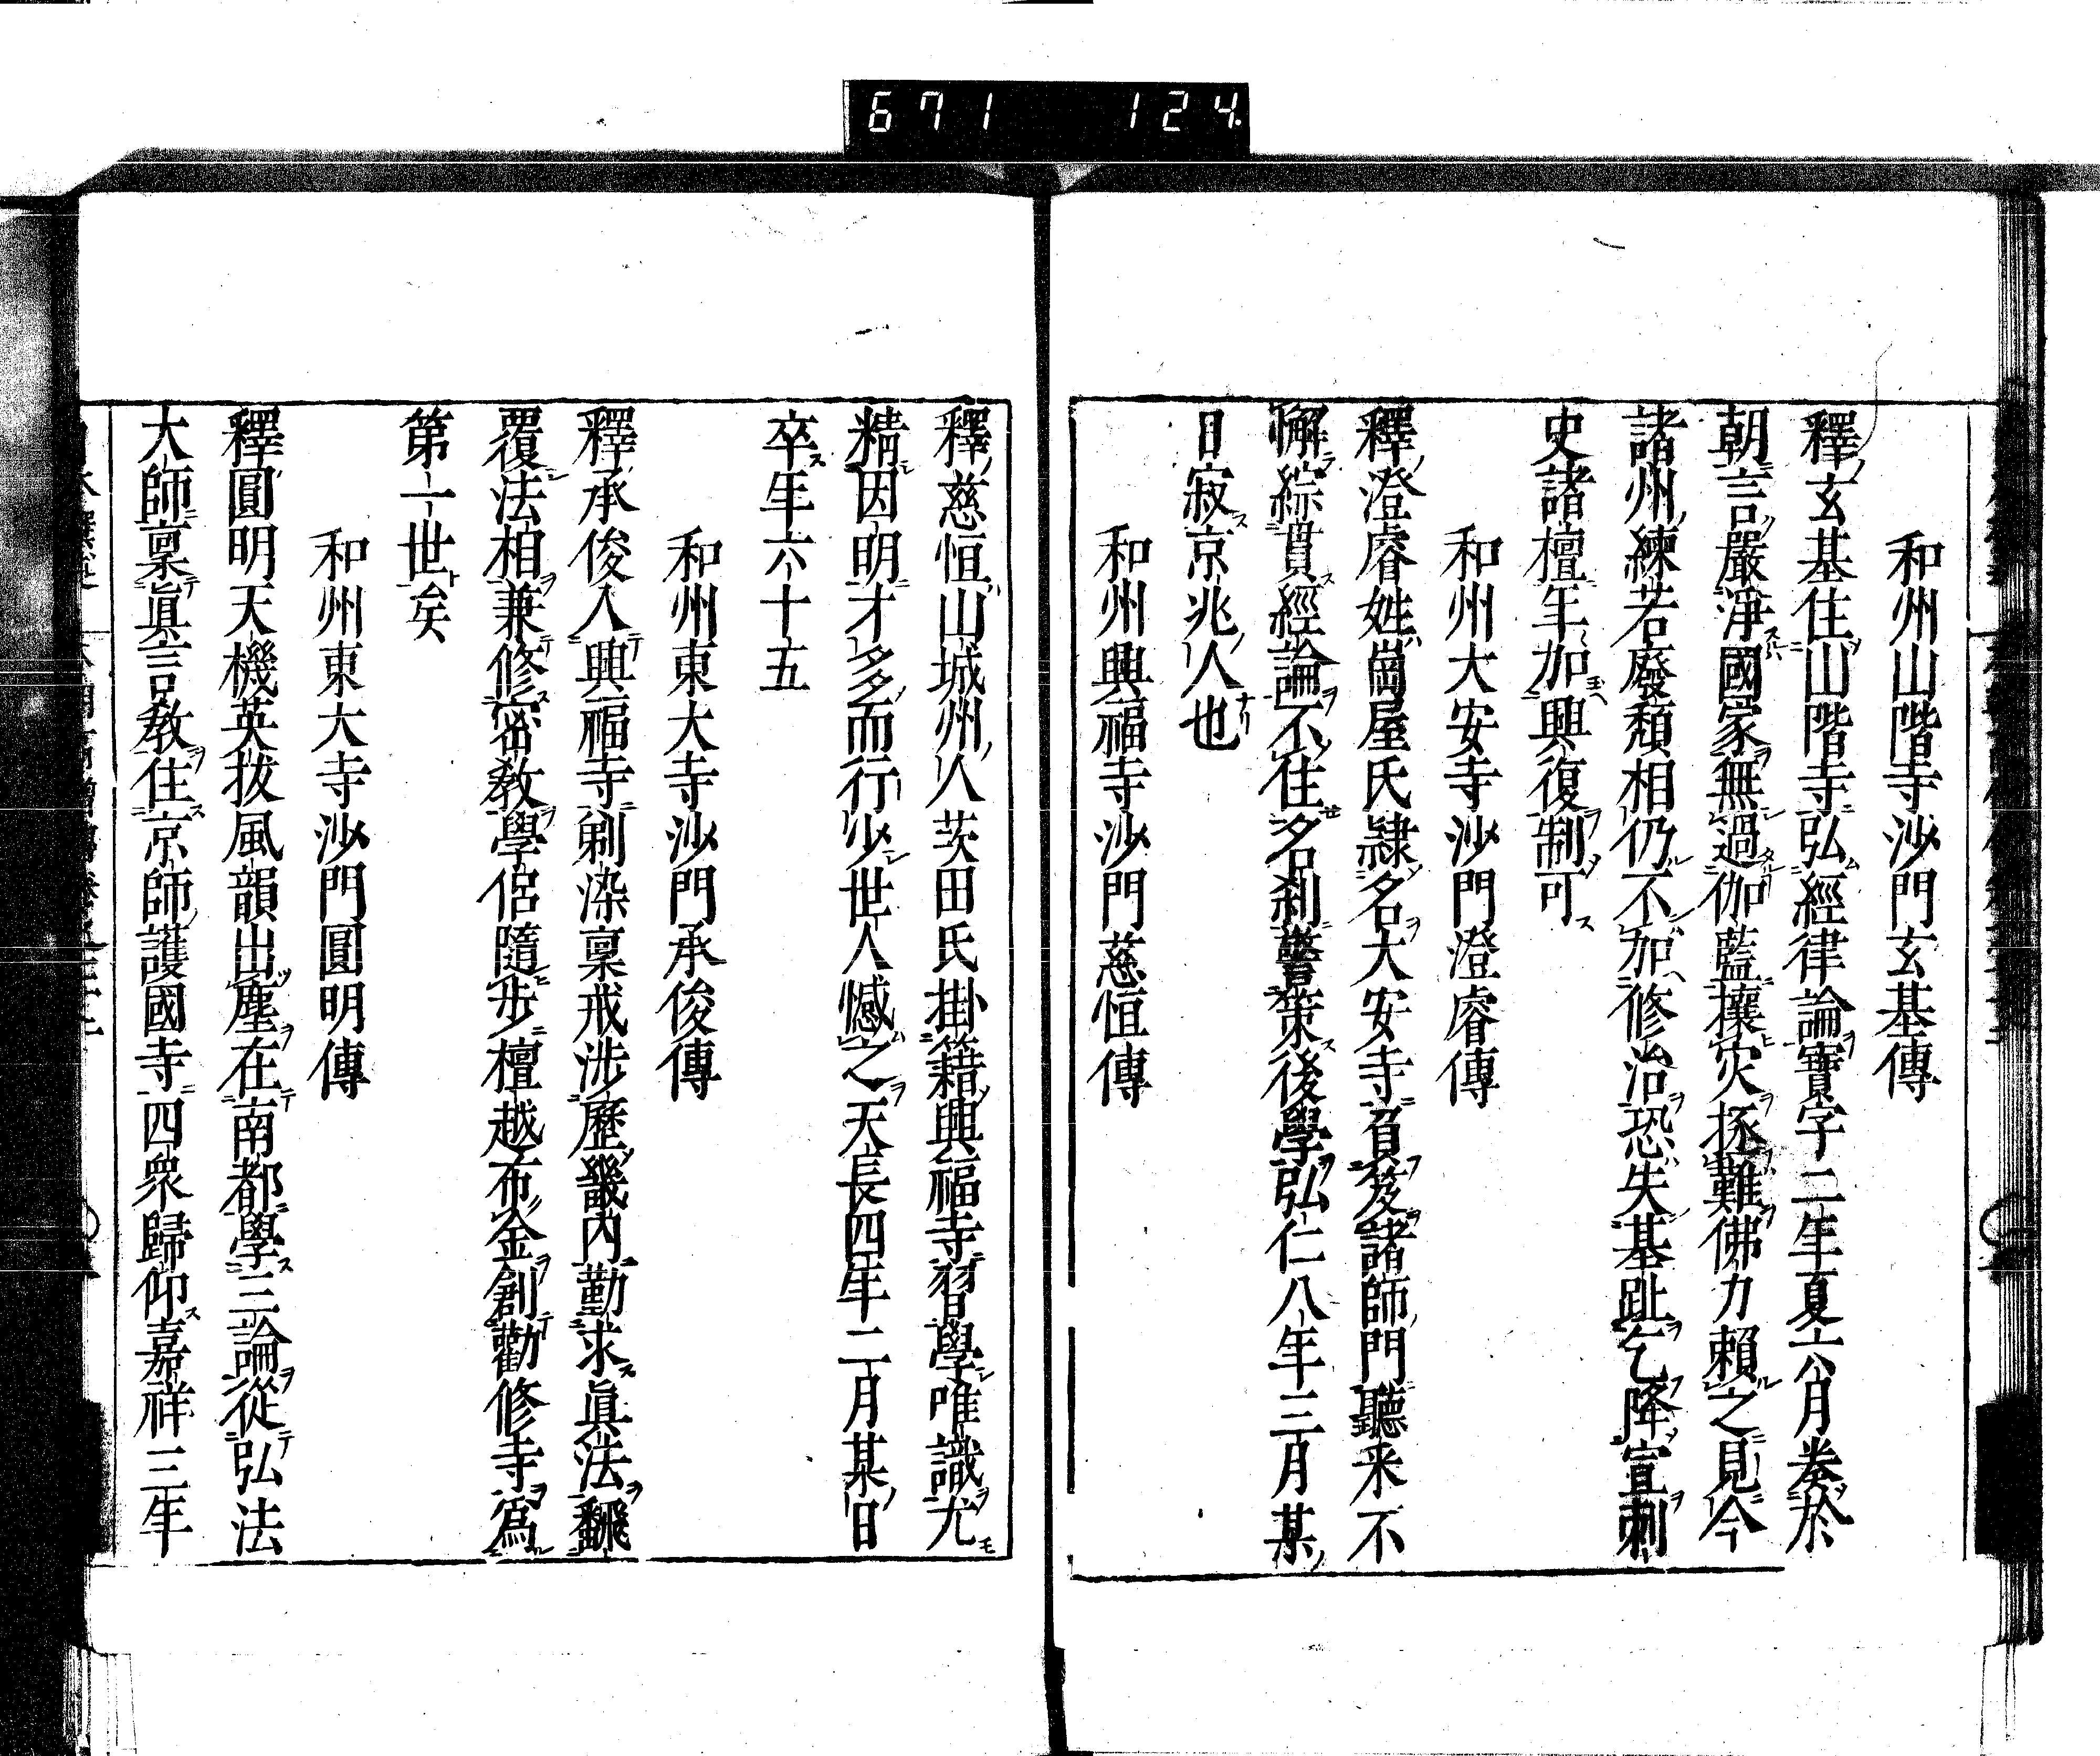 671 124.
和州山階寺沙門玄基傳
釋玄基住山階寺弘經律論寶字二年夏六月奏於
朝言嚴淨國家無過伽藍攘灾拯難佛力賴之見今
諸州練若廢頽相仍不加修治恐失基趾乞降宣刺
史諸檀年加興復制可
和州大安寺沙門澄睿傳
釋澄睿姓崗屋氏隷名大安寺負笈諸師門聽采不
懈綜貫經論不住名刹警策後學弘仁八年三月某
日寂京兆人也
和州興福寺沙門慈恒傳
釋慈恒山城州人茨田氏掛籍興福寺習學唯識尤
精因明才多而行少世人憾之天長四年二月某日
卒年六十五
和州東大寺沙門承俊傳
釋承俊入興福寺剃染稟戒涉歷畿內勤求眞法飜
覆法相兼修密教學侶隨步檀越布金創勸修寺爲
第一世矣
和州東大寺沙門圓明傳
釋圓明天機英拔風韻出塵在南都學三論從弘法
大師稟眞言教住京師護國寺四衆歸仰嘉祥三年